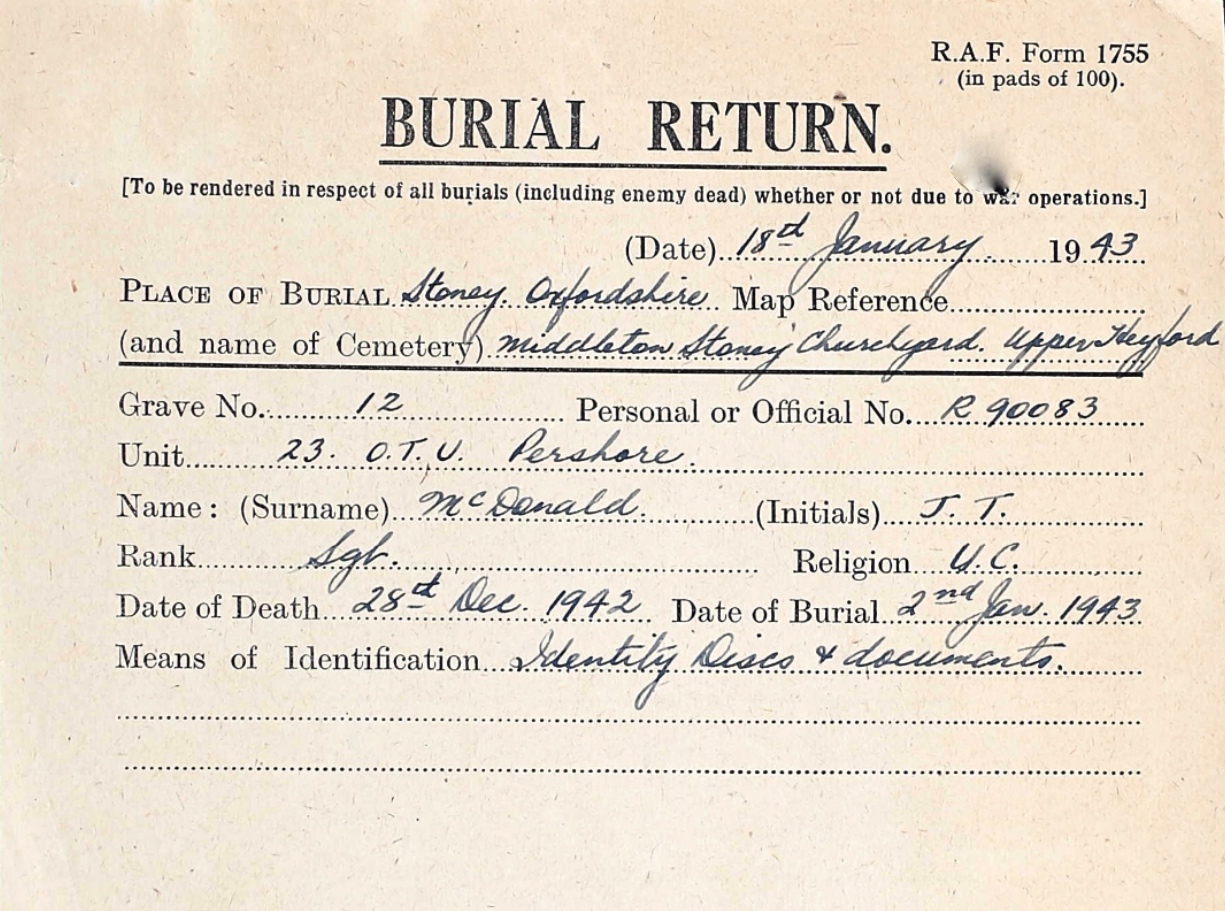 R.A.F. Form 1755
(in pads of 100).
BURIAL RETURN.
[To be rendered in respect of all burials (including enemy dead) whether or not due to war operations.]
(Date) 18th January 1943
PLACE OF BURIAL Stoney. Oxfordshire Map Reference
(and name of Cemetery) Middleton Stoney Churchyard. Upper Heyford
Grave No. 12 Personal or Official No. R 90083
Unit 23. O.T.U. Pershore.
Name: (Surname) McDonald. (Initials) J. T.
Rank Sgt. Religion U.C.
Date of Death 28st Dec. 1942 Date of Burial 2nd Jan. 1943
Means of Identification Identity Discs & documents.